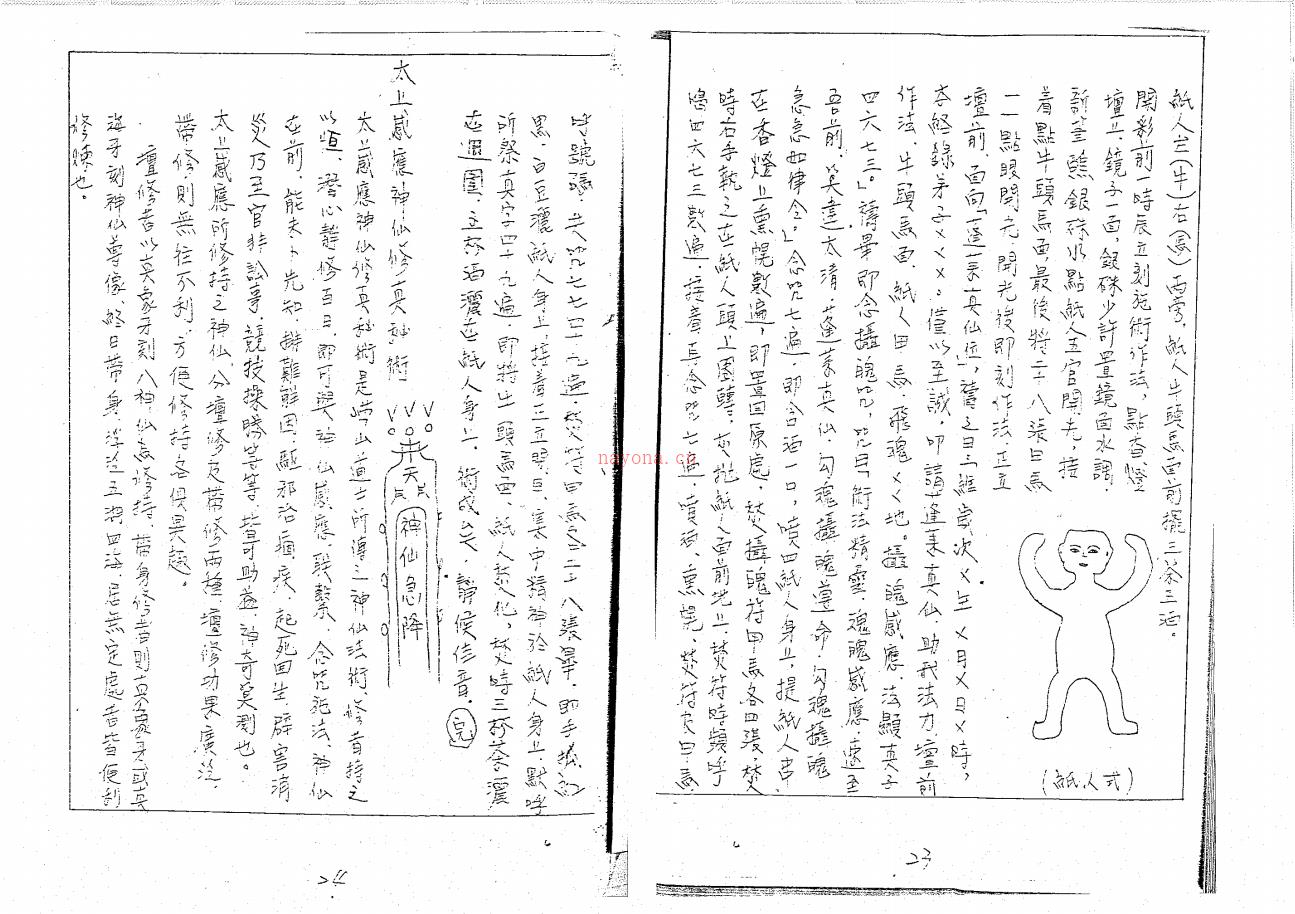 紙人左(牛)右(馬)兩旁，紙人牛頭馬面前擺三茶三酒。
開彩前一時辰立刻施術作法，點香燈
壇上，鏡子一面，銀硃少許置鏡面水調，
新筆醮銀硃水點紙人五官開光，接
着點牛頭馬面最後將二十八張甲馬
一一點眼開光，開光後即刻作法，立立
壇前，面向「蓬萊真仙位」，
歲次×年×月×日×時，
弟子×××，僅以至誠，叩請蓬萊真仙，助我法力，壇前
作法，牛頭馬面，紙人甲馬，飛魂××地。攝魂感應，法顯真子
四六七三。」禱畢即念攝魂咒，咒曰「術法精靈，魂魂感應，速至
吾前，莫違太清，蓬萊真仙，勾魂攝魂尊命，勾魂攝魂
急急如律令。」念咒七遍，即含酒一口，噴四紙人身上，提紙人串
在香燈上熏幌數遍，即置回原處，焚攝魂符甲馬各四張，焚
時右手執之在紙人頭上圍轉，灰
紙人面前地上，焚符時頻呼
四六七三數遍，接着再念咒七遍，噴酒，熏幌，焚符甲馬
呼號碼，共咒七七四十九遍，焚符甲馬二十八張畢，即手抓紅
黑，白豆灑紙人身上，接着三立
，集中精神於紙人身上，默呼
所祭真字四十九遍，即將牛頭馬面，紙人焚化，焚時三杯茶灑
在週圍，三杯酒灑在紙人身上，術成矣，靜候佳音。(完)
太上感應神仙修真秘術
天
神仙急降
太上感應神仙修真秘術是
山道士所傳之神仙法術，修者持之
以恒，潛心靜修百日，即可與神仙感應，聯繫，念咒施法，神仙
在前，能未卜先知，排難解困，驅邪治痼疾，起死回生，辟害消
災，乃至官非訟事，競技操勝等等，皆可助益，神奇莫測也。
太上感應所修持之神仙，分壇修及帶修兩種，壇修功果廣泛，
帶修則無往不利，方便修持各俱異趣。
壇修者以真象牙刻八神仙為修持，帶身修者則真象牙或真
海牙刻神仙尊像，終日帶身，浮泛五湖四海居無定處者皆便刻
修煉也。
(紙人式)
23
24
nayona.cn